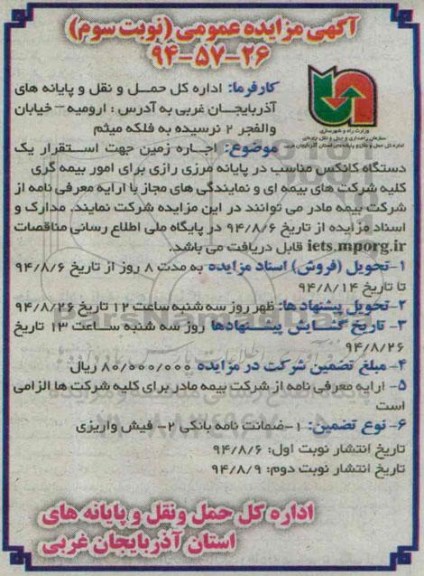 آگهی مزایده عمومی (نوبت سوم)
۹۴-۵۷-۲۶
کارفرما: اداره کل حمل و نقل و پایانه های
آذربایجان غربی به آدرس : ارومیه – خیابان
والفجر ۲ نرسیده به فلکه میثم
موضوع: اجاره زمین جهت استقرار یک
دستگاه کانکس مناسب در پایانه مرزی رازی برای امور بیمه گری
کلیه شرکت های بیمه ای و نمایندگی های مجاز با ارایه معرفی نامه از
شرکت بیمه مادر می توانند در این مزایده شرکت نمایند. مدارک و
اسناد مزایده از تاریخ ۹۴/۸/۶ در پایگاه ملی اطلاع رسانی مناقصات
iets.mporg.ir قابل دریافت می باشد.
۱-تحویل (فروش) اسناد مزایده به مدت ۸ روز از تاریخ ۹۴/۸/۶
تا تاریخ ۹۴/۸/۱۴
۲-تحویل پیشنهاد ها: ظهر روز سه شنبه ساعت ۱۲ تاریخ ۹۴/۸/۲۶
۳- تاریخ گشایش پیشنهادها روز سه شنبه ساعت ۱۳ تاریخ
۹۴/۸/۲۶
۴- مبلغ تضمین شرکت در مزایده ۸۰/۰۰۰/۰۰۰ ریال
۵- ارایه معرفی نامه از شرکت بیمه مادر برای کلیه شرکت ها الزامی
است
۶- نوع تضمین: ۱-ضمانت نامه بانکی ۲- فیش واریزی
تاریخ انتشار نوبت اول: ۹۴/۸/۶
تاریخ انتشار نوبت دوم: ۹۴/۸/۹
اداره کل حمل ونقل و پایانه های
استان آذربایجان غربی